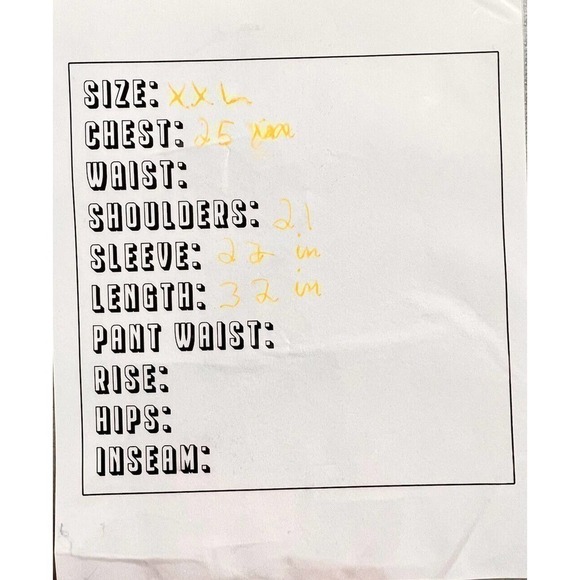 SIZE: XXL
CHEST: 25
WAIST:
SHOULDERS: 21
SLEEVE: 22 in
LENGTH: 32 in
PANT WAIST:
RISE:
HIPS:
INSEAM: